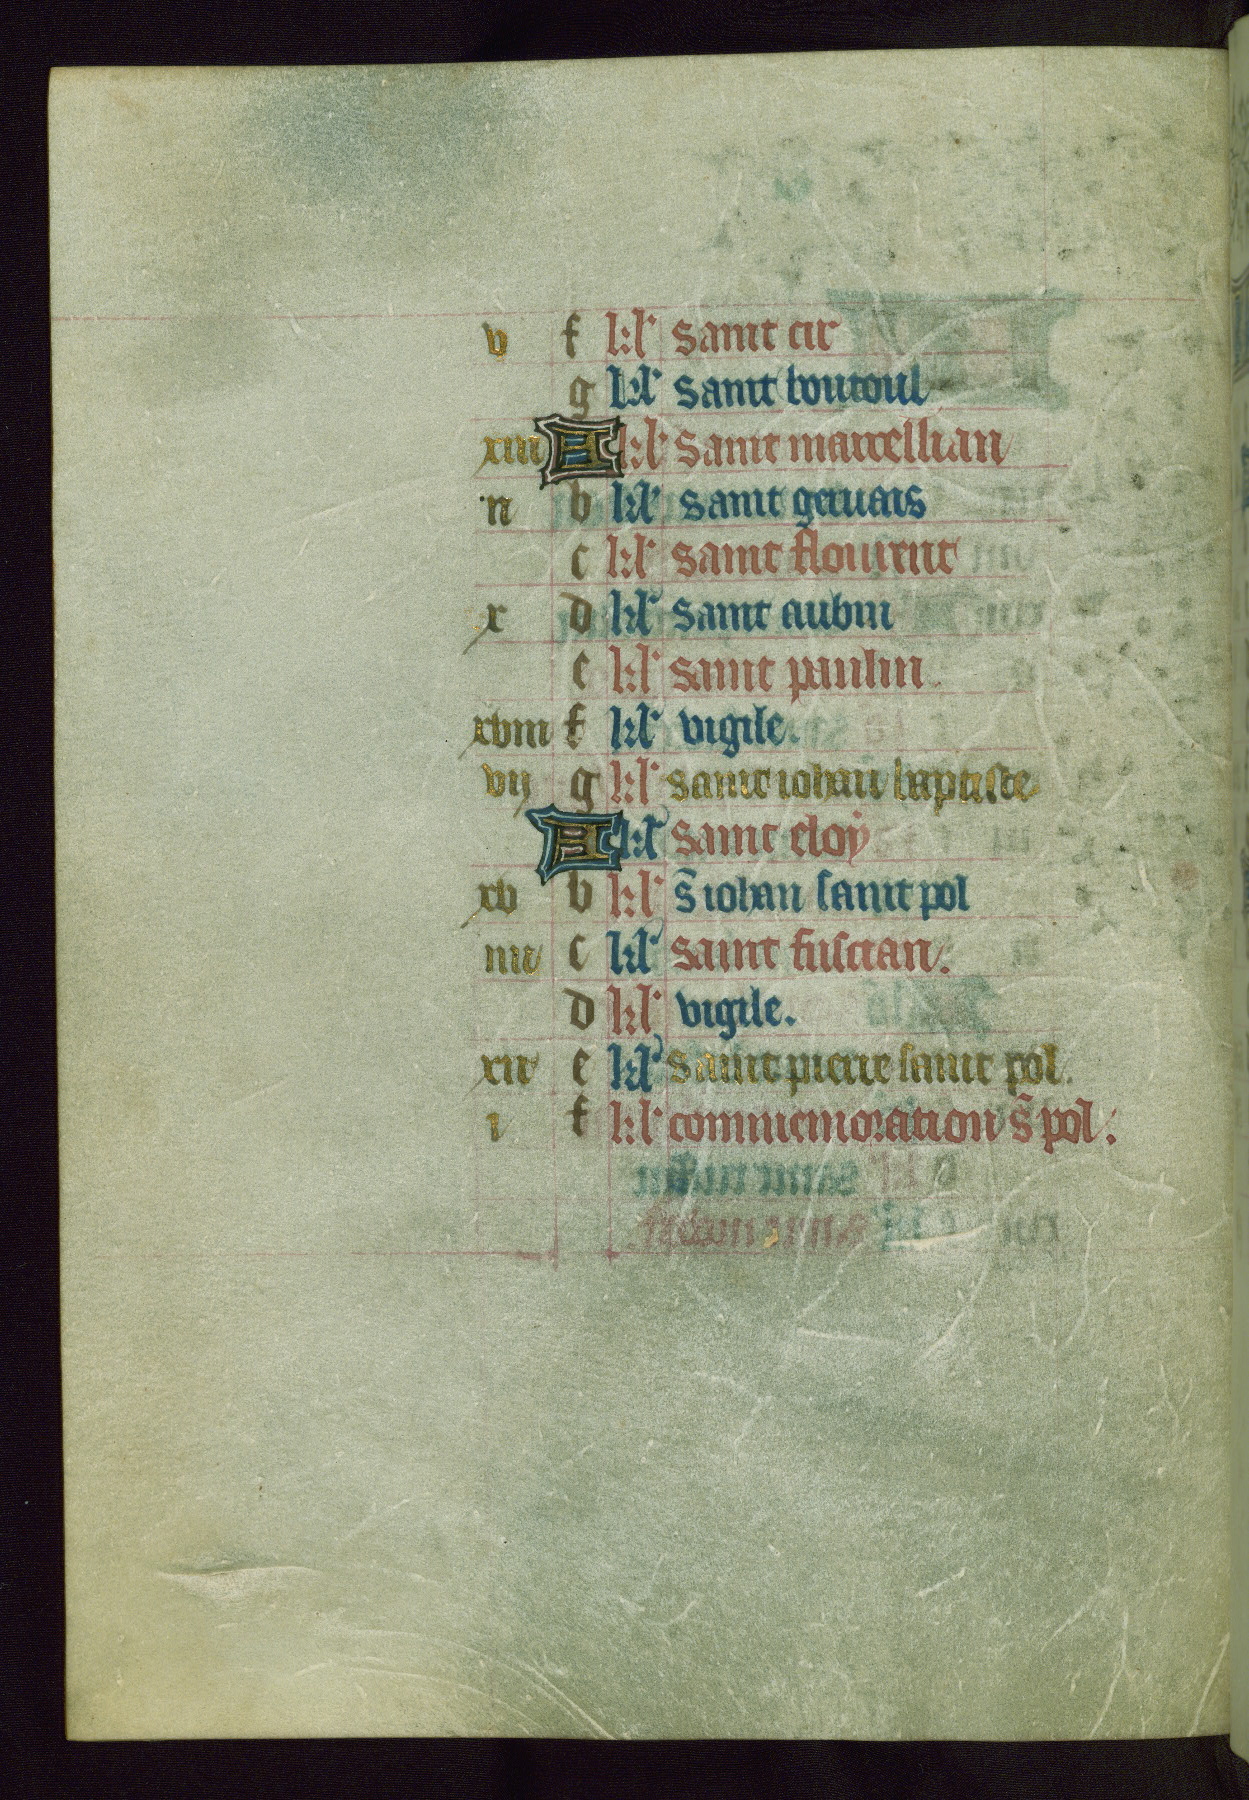 v f kl' saint cir
g kl' saint boutoul
xiii A kl' saint marcellian
ii b kl' saint geruais
c kl' saint flourent
x d kl' saint aubin
e kl' saint paulin.
xviii f kl' vigile.
vij g kl' saint iohan baptiste
A kl' saint eloy
xv b kl' s̄ iohan saint pol
iiii c kl' saint fuscian.
d kl' vigile.
xii e kl' saint pierre saint pol.
i f kl' commemoration s̄ pol.